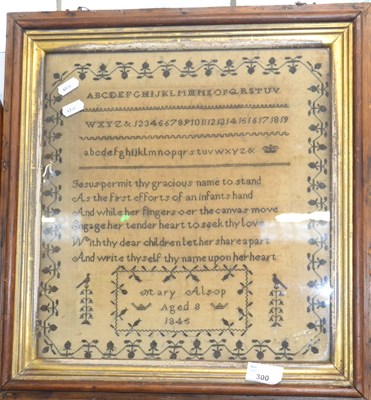 ABCDEFGHIJKLMNOPQRSTUV
WXYZ& 12345678910111213141516171819
abcdefghijklmnopqrstuvwxyz&
Jesus permit thy gracious name to stand
As the first efforts of an infants hand
And while her fingers oer the canvas move
Engage her tender heart to seek thy love
With thy dear children let her share a part
And write thyself thy name upon her heart
Mary Alsop
Aged 8
1845
300